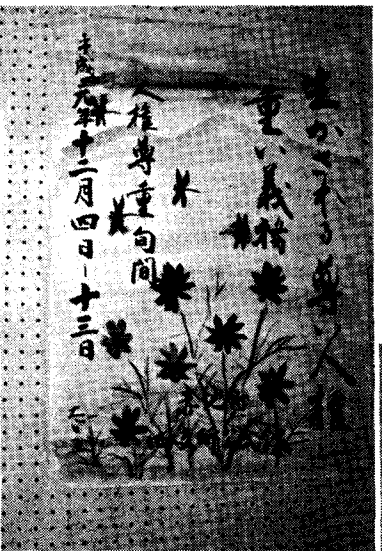 生かされる尊い人権
重い義務
人権尊重旬間
平成元年十二月四日-十三日